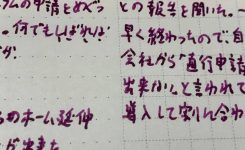 ラムの申請をめぐっ
。何でもしばれば
か
との報告を聞いた。
早く終わったので、自
会社から「直行申請
出来ない」と言われて
導入して
のホーム延伸
が出来た